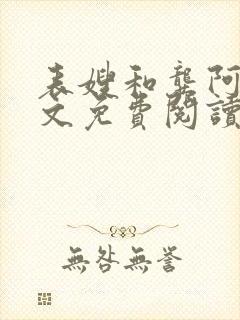 表嫂和龔阿
文免費閱讀
無咎無譽